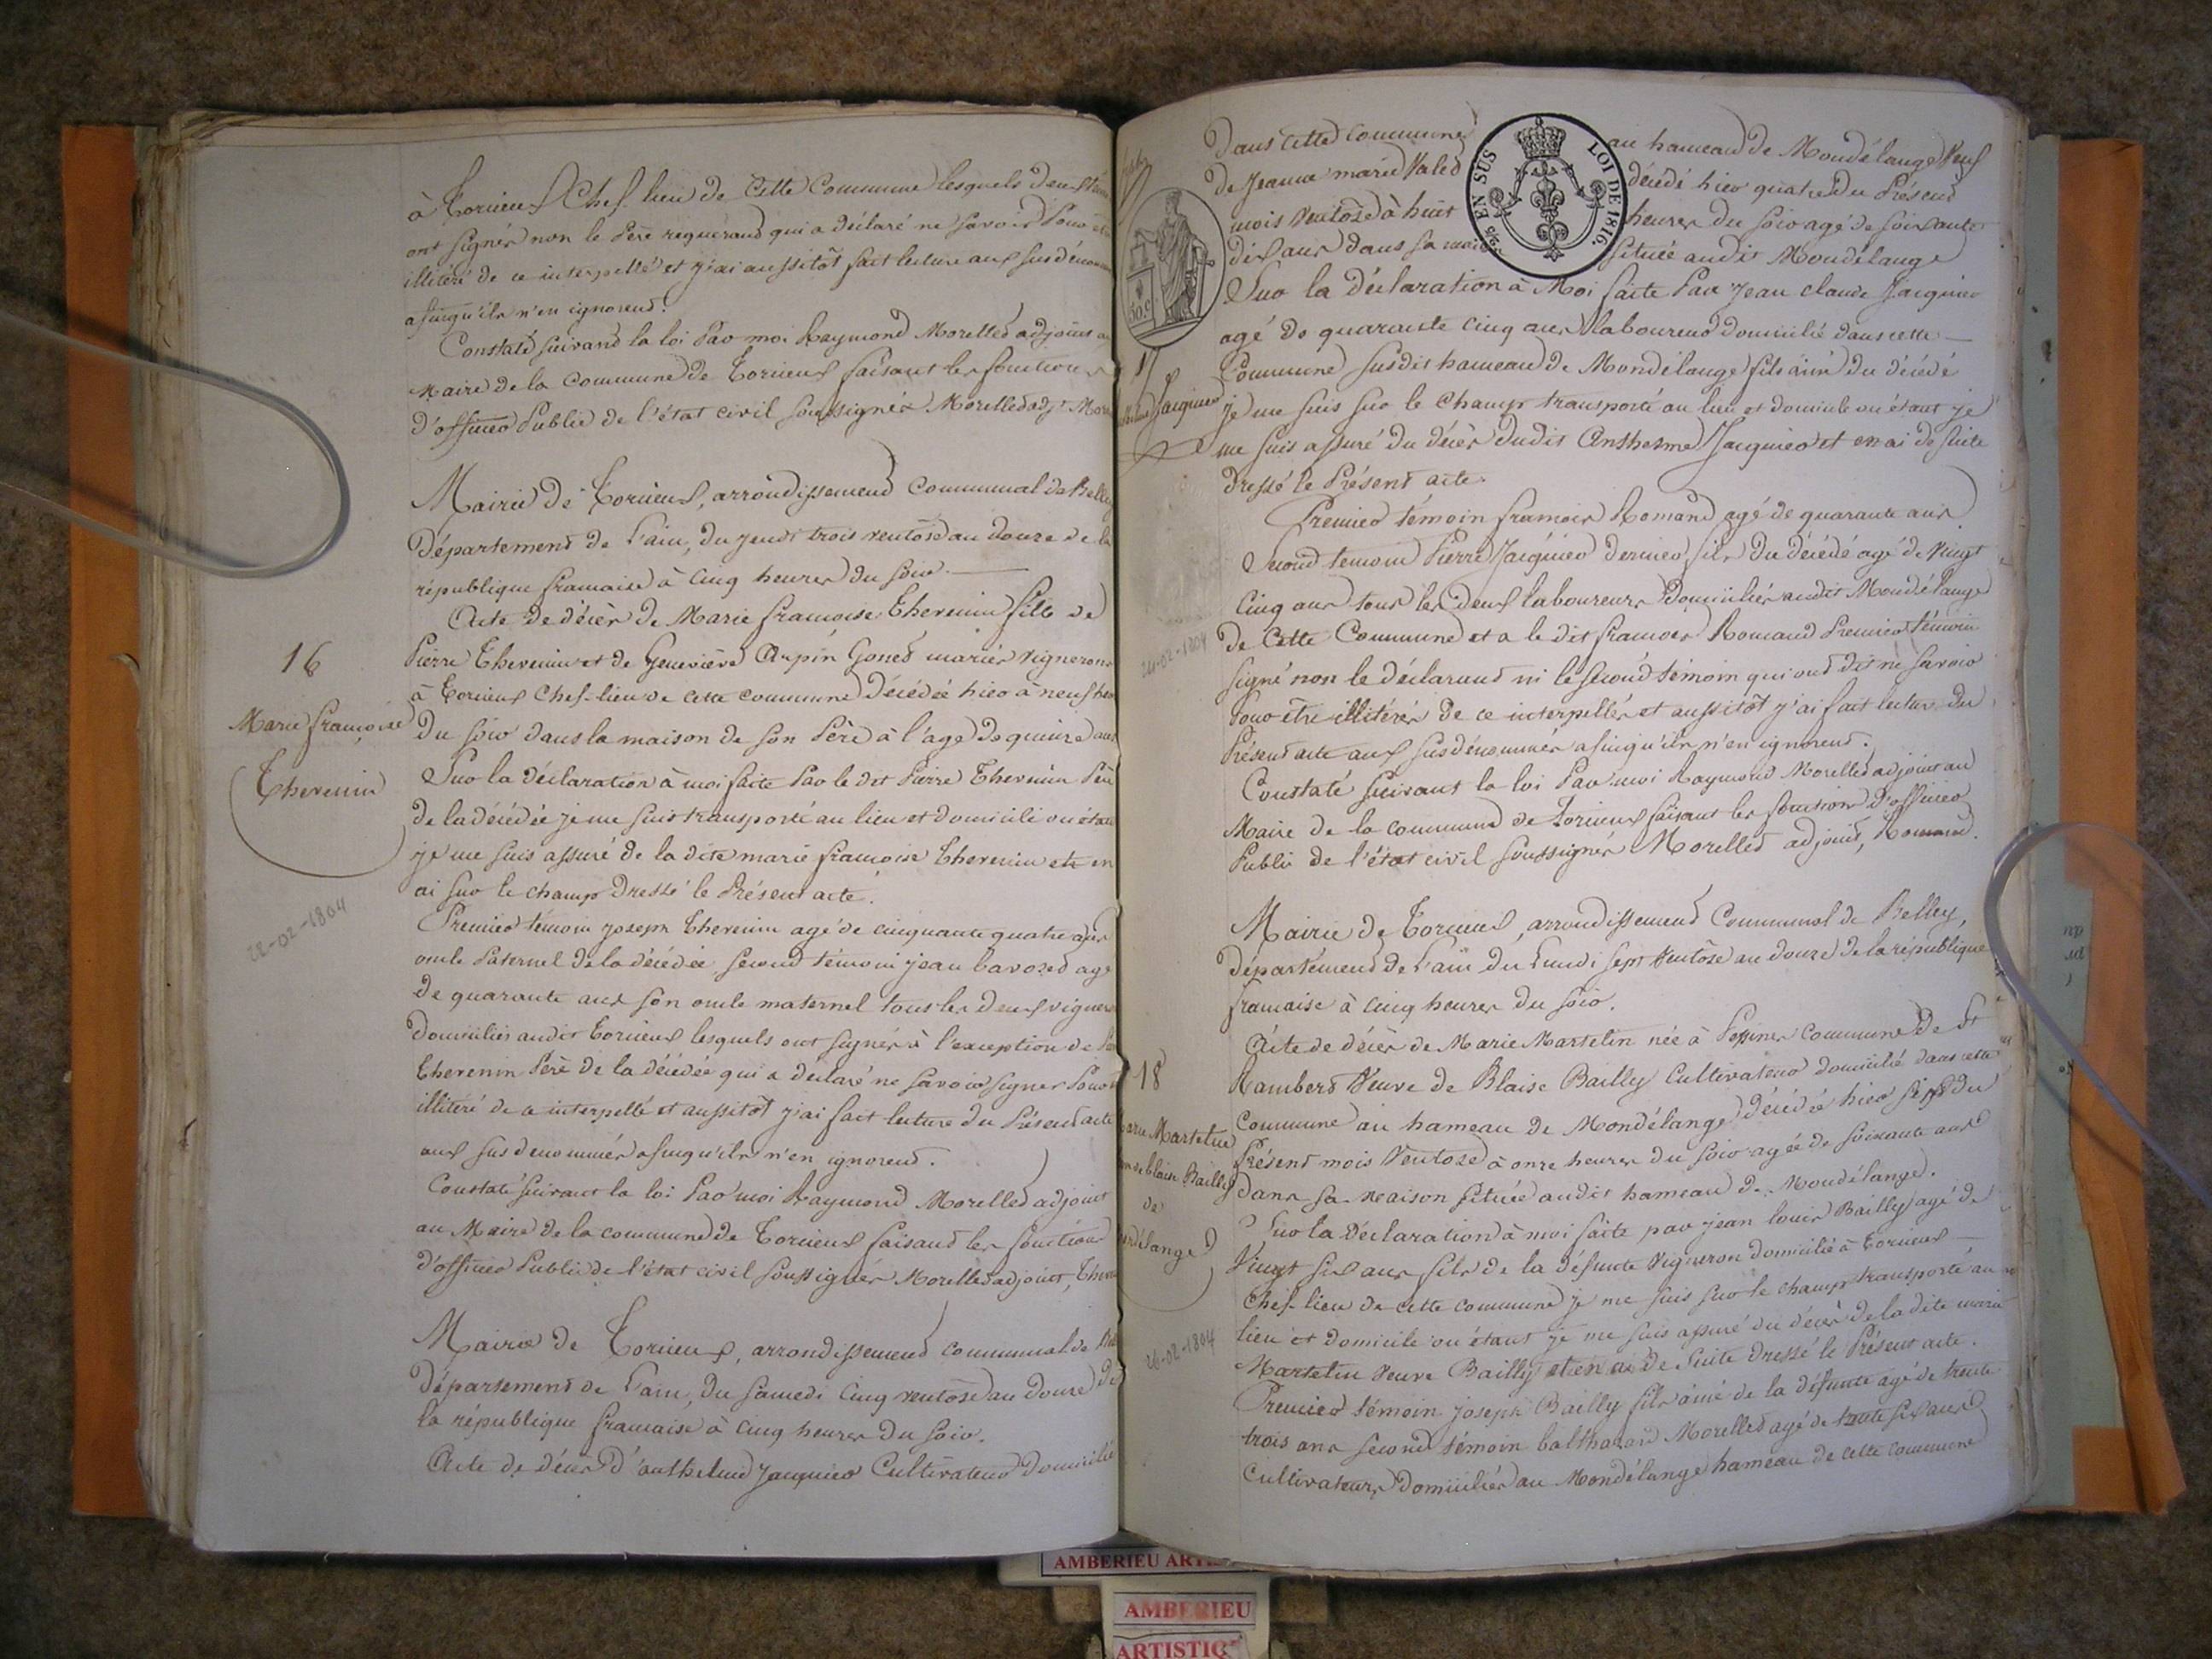 à Torcieux Chef-lieu de cette Commune lesquels deux
ont signés non le Père requérant qui a déclaré ne savoir Pour
illitéré de ce interpellé et j'ai aussitôt fait lecture aux susdénommés
afinqu'ils n'en ignorent.
Constaté suivant la loi Par moi Raymond Morellet adjoint au
Maire de la Commune de Torcieux faisant les fonctions
d'officier Public de l'état civil soussignés Morellet adjt
Mairie de Torcieux, arrondissement Communal de Belley
Département de l'ain, du jeudi trois ventôse an douze de la
république francaise à cinq heures du soir.
Acte de décès de Marie francoise Thevenin fille de
16
Pierre Thevenin et de Geneviève Arpin Gonet mariés vignerons
à Torcieux Chef-lieu de cette commune décédée hier à neuf
Marie françoise
Thevenin
du soir dans la maison de son Père à l'age de quinze ans
Sur la déclaration à moi faite Par le dit Pierre Thevenin Père
de la décédée je me suis transporté au lieu et domicile ou étant
je me suis assuré de la dite marie francoise Thevenin et en
ai sur le champ dressé le Présent acte.
22-02-1804
Premier témoin joseph Thevenin agé de cinquante quatre ans
oncle Paternel de la décédée second témoin jean bavozet agé
de quarante ans son oncle maternel tous les deux
domiciliés audit Torcieux lesquels ont signés à l'exception de
Thevenin Père de la décédée qui a declaré ne savoir signer Pour
illitéré de ce interpellé et aussitôt j'ai fait lecture du Présent acte
aux susdenommés afinqu'ils n'en ignorent.
Constaté suivant la loi Par moi Raymond Morellet adjoint
au Maire de la commune de Torcieux faisant les fonctions
d'officier Public de l'état civil soussignés Morellet adjoint,
Mairie de Torcieux, arrondissement communal de
Département de l'ain, du samedi cinq ventôse an douze de
la république francaise à cinq heures du soir.
Acte de décès d'anthelme jacquier Cultivateur domicilié
dans cette commune au hameau de Mondélange Veuf
de Jeanne marie Valet décédé hier quatre du Présent
mois ventose à huit heures du soir agé de soixante
dix ans dans sa maison située audit Mondélange
5% EN SUS LOI DE 1816.
50.C
Sur la déclaration à Moi faite Par jean claude Jacquier
agé de quarante cinq ans laboureur domicilié dans cette
17
Commune susdit hameau de Mondélange fils ainé du décédé
Jacquier
je me suis sur le champ transporté au lieu et domicile ou étant je
me suis assuré du décès dudit Anthesme Jacquier et en ai de suite
dressé le Présent acte.
Premier témoin francois Romand agé de quarante ans
Second temoin Pierre Jacquier dernier fils du décédé agé de vingt
cinq ans tous les deux laboureurs domiciliés audit Mondélange
-02-1804
de cette Commune et a le dit francois Romand Premier témoin
signé non le déclarant ni le second témoin qui ont dit ne savoir
Pour être illitérés de ce interpellés et aussitôt j'ai fait lecture du
Présent acte aux susdénommés afinqu'ils n'en ignorent.
Constaté suivant la loi Par moi Raymond Morellet adjoint au
Maire de la commune de Torcieux faisant les fonctions d'officier
Public de l'état civil soussignés Morellet adjoint, Romand.
Mairie de Torcieux, arrondissement Communal de Belley,
département de l'ain du Lundi sept Ventôse an douze de la république
francaise à cinq heures du soir.
Acte de décès de Marie Martelin née à commune de St
18
Rambert Veuve de Blaise Bailly Cultivateur domicilié dans cette
commune au hameau de Mondélange décédée hier six du
Martelin
Présent mois Ventose à onze heures du soir agée de soixante ans
blaise Bailly
de
dans sa maison située audit hameau de Mondélange.
Sur la déclaration à moi faite par jean louis Bailly agé de
vingt six ans fils de la défunte vigneron domicilié à Torcieux
chef-lieu de cette commune je me suis sur le champ transporté au
lieu et domicile ou étant je me suis assuré du décès de la dite marie
26-02-1804
Martelin veuve Bailly et en ai de suite dressé le Présent acte.
Premier témoin joseph Bailly fils ainé de la défunte agé de trente
trois ans second témoin balthazard Morellet agé de trente six ans
Cultivateurs domiciliés au Mondélange hameau de cette commune
AMBERIEU
AMBERIEU
ARTISTIQ